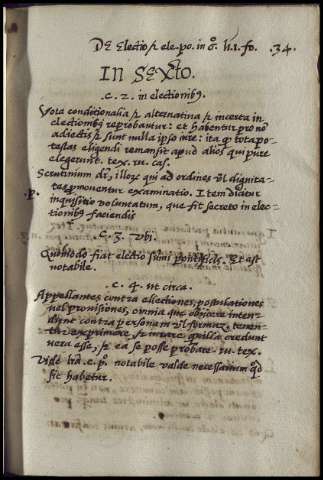 De Electio. et ele. po. in 6. li. I. fo. 34.
In Sexto.
c. 2. in electionibus.
Vota conditionalia et alternativa et incerta in
electionibus reprobantur: et habentur pro non
adiectis et sunt nulla ipso iure: ita quod tota po-
testas eligendi remansit apud alios qui pure
elegerunt. tex. ru. cas.
Scrutinium dicitur, illorum qui ad ordines vel dignita-
tes promoventur examinatio. Item dicitur
inquisitio voluntatum, que fit secreto in elec-
tionibus faciendis
.c. 3. ubi.
Quomodo fiat electio summi pontificis. Et est
notabile.
.c. 4. ut circa.
Appellantes contra electiones, postulationes
vel provisiones, omnia que obijcere inten-
dunt contra personam vel formam, tenen-
tur exprimere et iurare quod illa credunt
vera esse, et ea se posse probare. tu. tex.
Vide
notabile valde necessarium quod
sic habetur.